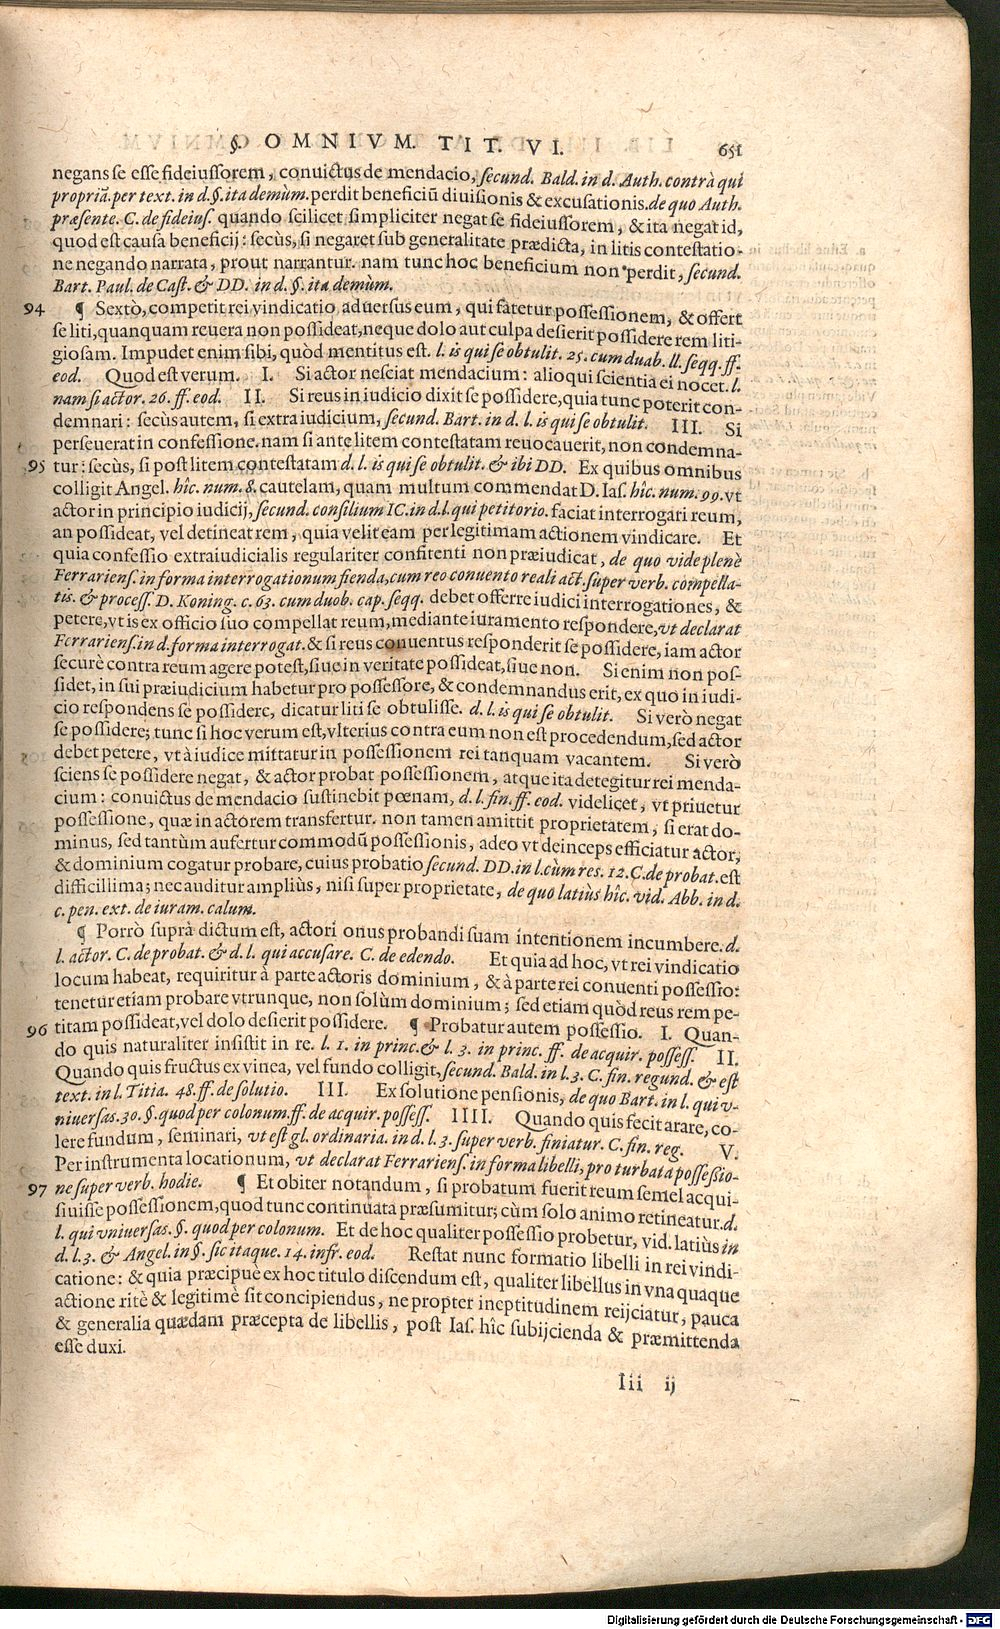 §. OMNIVM. TIT. VI. 651
negans se esse fideiussorem, conuictus de mendacio, secund. Bald. in d. Auth. contrà qui
propriã. per text. in d. §. ita demùm. perdit beneficiũ diuisionis & excusationis. de quo Auth.
præsente. C. de fideius. quando scilicet simpliciter negat se fideiussorem, & ita negat id,
quod est causa beneficij: secùs, si negaret sub generalitate prædicta, in litis contestatio-
ne negando narrata, prout narrantur. nam tunc hoc beneficium non perdit, secund.
Bart. Paul. de Cast. & DD. in d. §. ita demùm.
94 ¶ Sextò, competit rei vindicatio aduersus eum, qui fatetur possessionem, & offert
se liti, quanquam reuera non possideat, neque dolo aut culpa desierit possidere rem liti-
giosam. Impudet enim sibi, quòd mentitus est. l. is qui se obtulit. 25. cum duab. ll. seqq. ff.
eod. Quod est verum. I. Si actor nesciat mendacium: alioqui scientia ei nocet. l.
nam si actor. 26. ff. eod. II. Si reus in iudicio dixit se possidere, quia tunc poterit con-
demnari: secùs autem, si extra iudicium, secund. Bart. in d. l. is qui se obtulit. III. Si
perseuerat in confessione. nam si ante litem contestatam reuocauerit, non condemna-
95 tur: secùs, si post litem contestatam d. l. is qui se obtulit. & ibi DD. Ex quibus omnibus
colligit Angel. hîc. num. 8. cautelam, quam multum commendat D. Ias. hîc. num. 99. vt
actor in principio iudicij, secund. consilium IC. in d. l. qui petitorio. faciat interrogari reum,
an possideat, vel detineat rem, quia velit eam per legitimam actionem vindicare. Et
quia confessio extraiudicialis regulariter confitenti non præiudicat, de quo vide plenè
Ferrariens. in forma interrogationum fienda, cum reo conuento reali act. super verb. compella-
tis. & process. D. Koning. c. 63. cum duob. cap. seqq. debet offerre iudici interrogationes, &
petere, vt is ex officio suo compellat reum, mediante iuramento respondere, vt declarat
Ferrariens. in d. forma interrogat. & si reus conuentus responderit se possidere, iam actor
securè contra reum agere potest, siue in veritate possideat, siue non. Si enim non pos-
sidet, in sui præiudicium habetur pro possessore, & condemnandus erit, ex quo in iudi-
cio respondens se possidere, dicatur liti se obtulisse. d. l. is qui se obtulit. Si verò negat
se possidere; tunc si hoc verum est, vlterius contra eum non est procedendum, sed actor
debet petere, vt à iudice mittatur in possessionem rei tanquam vacantem. Si verò
sciens se possidere negat, & actor probat possessionem, atque ita detegitur rei menda-
cium: conuictus de mendacio sustinebit pœnam, d. l. fin. ff. eod. videlicet, vt priuetur
possessione, quæ in actorem transfertur. non tamen amittit proprietatem, si erat do-
minus, sed tantùm aufertur commodũ possessionis, adeo vt deinceps efficiatur actor,
& dominium cogatur probare, cuius probatio secund. DD. in l. cùm res. 12. C. de probat. est
difficillima; nec auditur ampliùs, nisi super proprietate, de quo latiùs hîc. vid. Abb. in d.
c. pen. ext. de iuram. calum.
¶ Porrò suprà dictum est, actori onus probandi suam intentionem incumbere. d.
l. actor. C. de probat. & d. l. qui accusare. C. de edendo. Et quia ad hoc, vt rei vindicatio
locum habeat, requiritur à parte actoris dominium, & à parte rei conuenti possessio:
tenetur etiam probare vtrunque, non solùm dominium; sed etiam quòd reus rem pe-
96 titam possideat, vel dolo desierit possidere. ¶ Probatur autem possessio. I. Quan-
do quis naturaliter insistit in re. l. 1. in princ. & l. 3. in princ. ff. de acquir. possess. II.
Quando quis fructus ex vinea, vel fundo colligit, secund. Bald. in l. 3. C. fin. regund. & est
text. in l. Titia. 48. ff. de solutio. III. Ex solutione pensionis, de quo Bart. in l. qui v-
niuersas. 30. §. quod per colonum. ff. de acquir. possess. IIII. Quando quis fecit arare, co-
lere fundum, seminari, vt est gl. ordinaria. in d. l. 3. super verb. finiatur. C. fin. reg. V.
Per instrumenta locationum, vt declarat Ferrariens. in forma libelli, pro turbata possessio-
97 ne super verb. hodie. ¶ Et obiter notandum, si probatum fuerit reum semel acqui-
siuisse possessionem, quod tunc continuata præsumitur; cùm solo animo retineatur. d.
l. qui vniuersas. §. quod per colonum. Et de hoc qualiter possessio probetur, vid. latiùs in
d. l. 3. & Angel. in §. sic itaque. 14. infr. eod. Restat nunc formatio libelli in rei vindi-
catione: & quia præcipuè ex hoc titulo discendum est, qualiter libellus in vna quaque
actione ritè & legitimè sit concipiendus, ne propter ineptitudinem reijciatur, pauca
& generalia quædam præcepta de libellis, post Ias. hîc subijcienda & præmittenda
esse duxi.
Iii ij
Digitalisierung gefördert durch die Deutsche Forschungsgemeinschaft - DFG